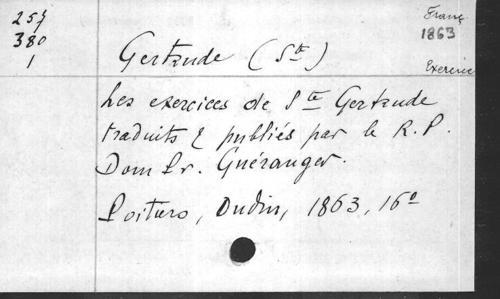 257
380
1
Franç
1863
Exercice
Gertrude (Ste)
Les exercices de Ste Gertrude
traduits & publiés par le R. P.
Dom Pr. Guéranger.
Poitiers, Oudin, 1863, 16o